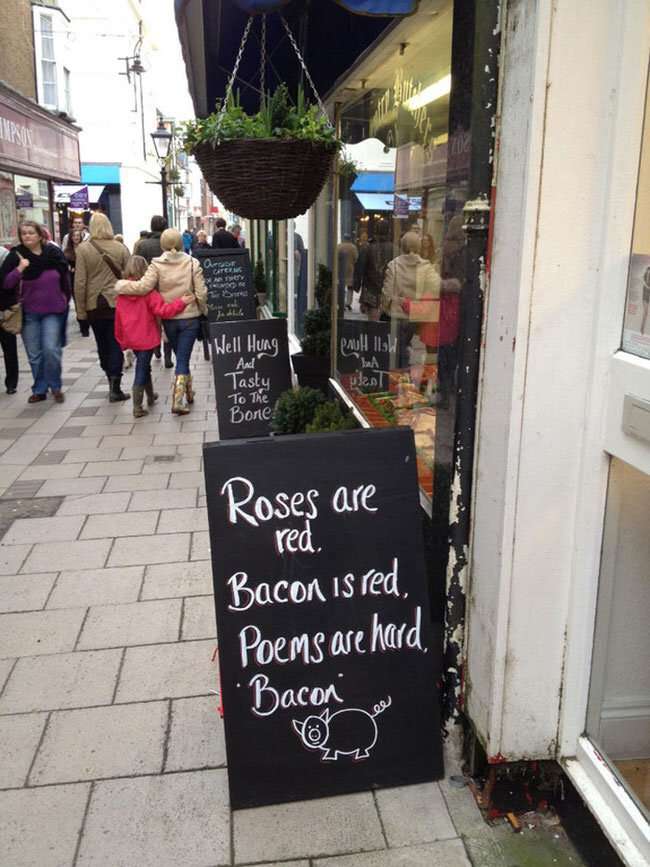 Roses are
red.
Bacon is red,
Poems are hard,
"Bacon"
Well Hung
And
Tasty
To The
Bone
Outside